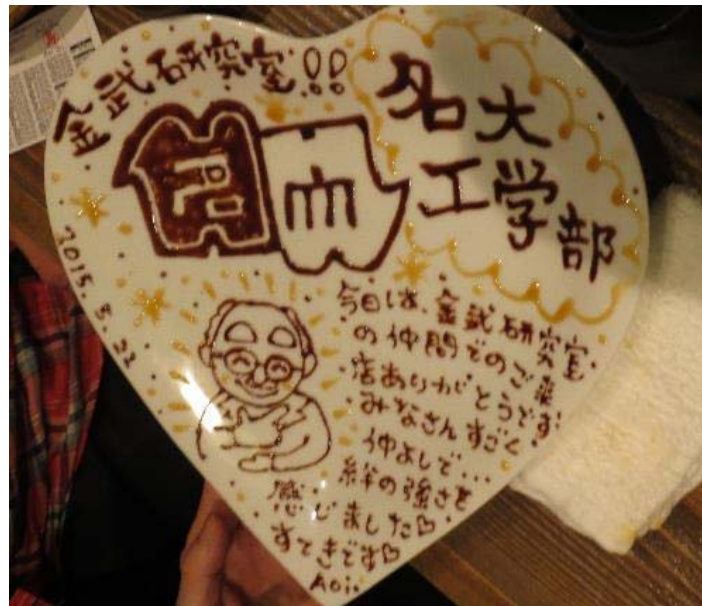 金武研究室!!
名大
工学部
2015.3.22
今日は、金武研究室
の仲間でのご来
店ありがとうです!
みなさんすごく
仲よしで...
絆の強さを
感じました♡
すてきです♡
Aoi.